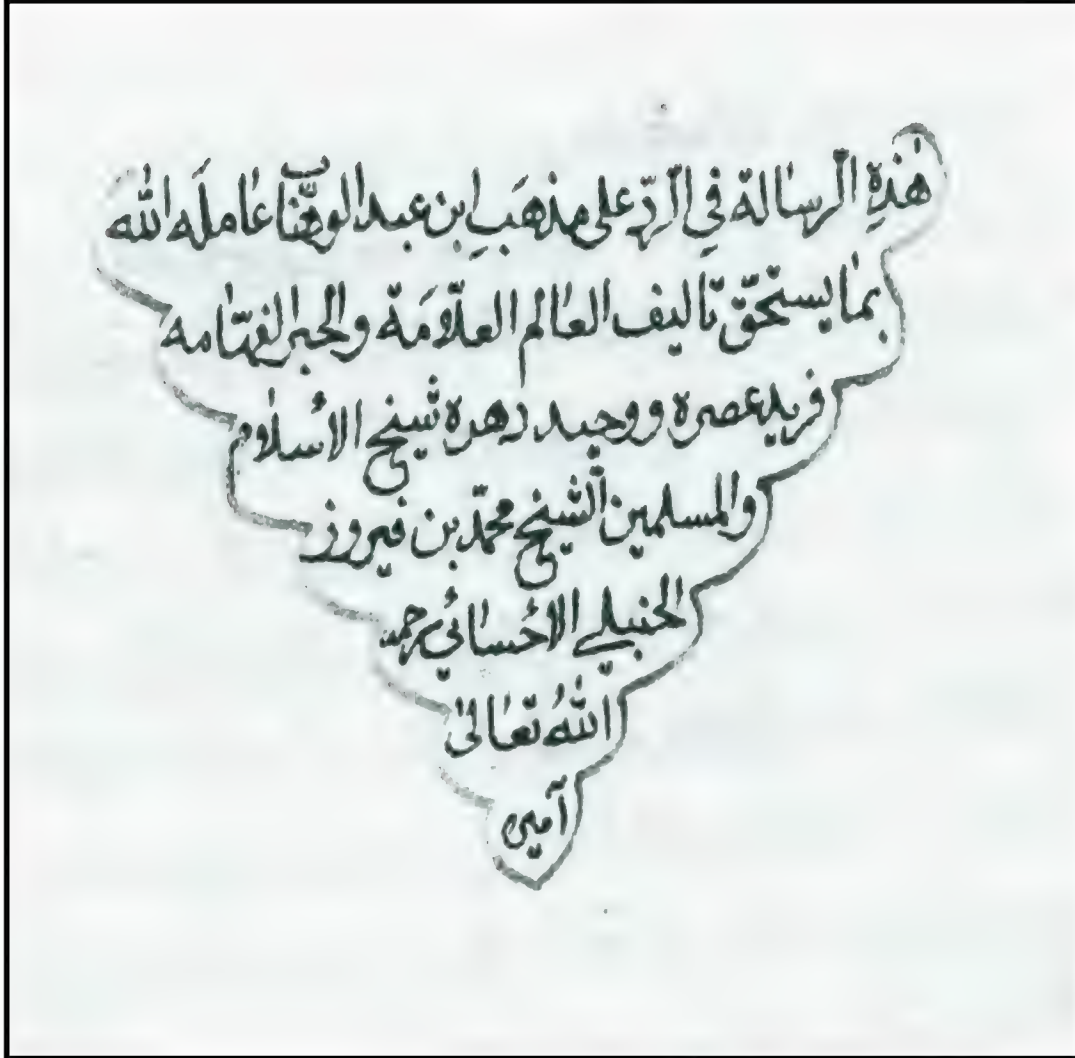 هٰذِهِ الرسالة في الردّ على مذهَبِ ابن عبد الوهّاب عامله الله
بما يستحقّ تأليف العالم العلّامَة والحبر الفهّامه
فريد عصره ووحيد دهره شيخ الاسلام
والمسلمين الشيخ محمّد بن فيروز
الحنبلي الاحسائي رحمه
اللهُ تعالىٰ
آمين